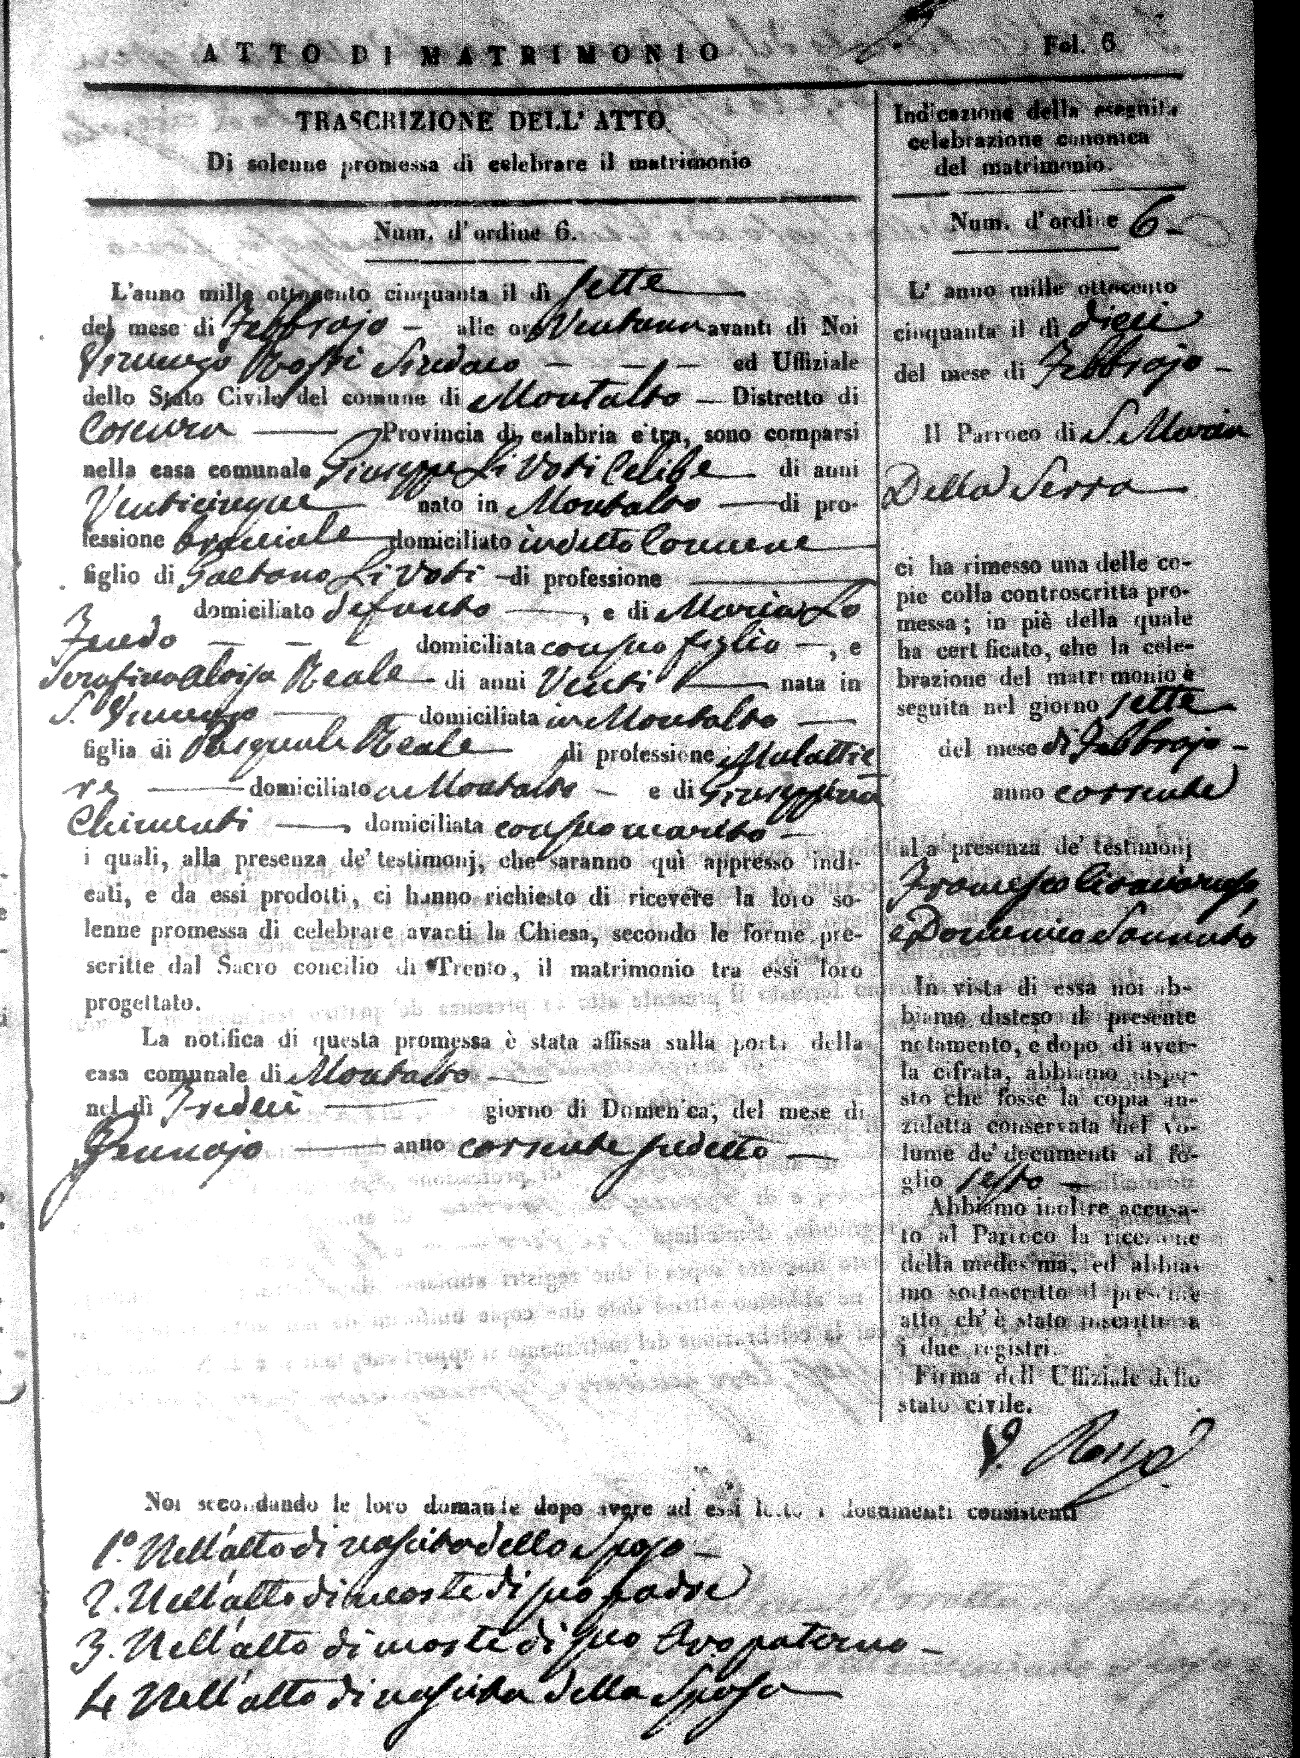 ATTO DI MATRIMONIO
Fol. 6
TRASCRIZIONE DELL' ATTO
Di solenne promessa di celebrare il matrimonio
Num. d'ordine 6.
L'anno mille ottocento cinquanta il dì sette
del mese di Febbrajo – alle ore Ventuna avanti di Noi
Vincenzo Rossi Sindaco – – – ed Uffiziale
dello Stato Civile del comune di Montalto – Distretto di
Cosenza – Provincia di calabria citra, sono comparsi
nella casa comunale Giuseppe Li Voti Celibe – di anni
Venticinque nato in Montalto – di pro-
fessione bracciale domiciliato in detto Comune
figlio di Gaetano Li Voti – di professione –
domiciliato defunto –, e di Maria Lo
Feudo – – – domiciliata con suo figlio –, e
Serafina Aloisa Reale – di anni Venti – nata in
S. Vincenzo – domiciliata in Montalto –
figlia di Pasquale Reale di professione Mulattie
re – domiciliato in Montalto – e di Giuseppina
Chimenti – domiciliata con suo marito –
i quali, alla presenza de' testimonj, che saranno quì appresso indi-
cati, e da essi prodotti, ci hanno richiesto di ricevere la loro so-
lenne promessa di celebrare avanti la Chiesa, secondo le forme pre-
scritte dal Sacro concilio di Trento, il matrimonio tra essi loro
progettato.
La notifica di questa promessa è stata affissa sulla porta della
casa comunale di Montalto –
nel dì Tredeci – giorno di Domenica, del mese di
Gennajo – anno corrente sudetto –
Indicazione della eseguita
celebrazione canonica
del matrimonio.
Num. d'ordine 6 –
L' anno mille ottocento
cinquanta il dì dieci
del mese di Febbrajo –
Il Parroco di S. Maria
Della Serra –
ci ha rimesso una delle co-
pie colla controscritta pro-
messa; in piè della quale
ha certificato, che la cele-
brazione del matrimonio è
seguita nel giorno sette
del mese di Febbrajo –
anno corrente
alla presenza de' testimonj
Francesco
e Domenico Sannuto
In vista di essa noi ab-
biamo disteso il presente
notamento, e dopo di aver-
la cifrata, abbiamo dispo-
sto che fosse la copia an-
zidetta conservata nel vo-
lume de' documenti al fo-
glio sesto –
Abbiamo inoltre accusa-
to al Parroco la ricezione
della medesima, ed abbia-
mo sottoscritto il presente
atto ch' è stato inscritto a
i due registri.
Firma dell' Uffiziale dello
stato civile.
V.º Rossi
Noi secondando le loro domande dopo avere ad essi letto i documenti consistenti
1.º Nell'atto di nascita dello Sposo –
2. Nell'atto di morte di suo padre
3. Nell'atto di morte di suo Avo paterno –
4 Nell'atto di nascita della Sposa –